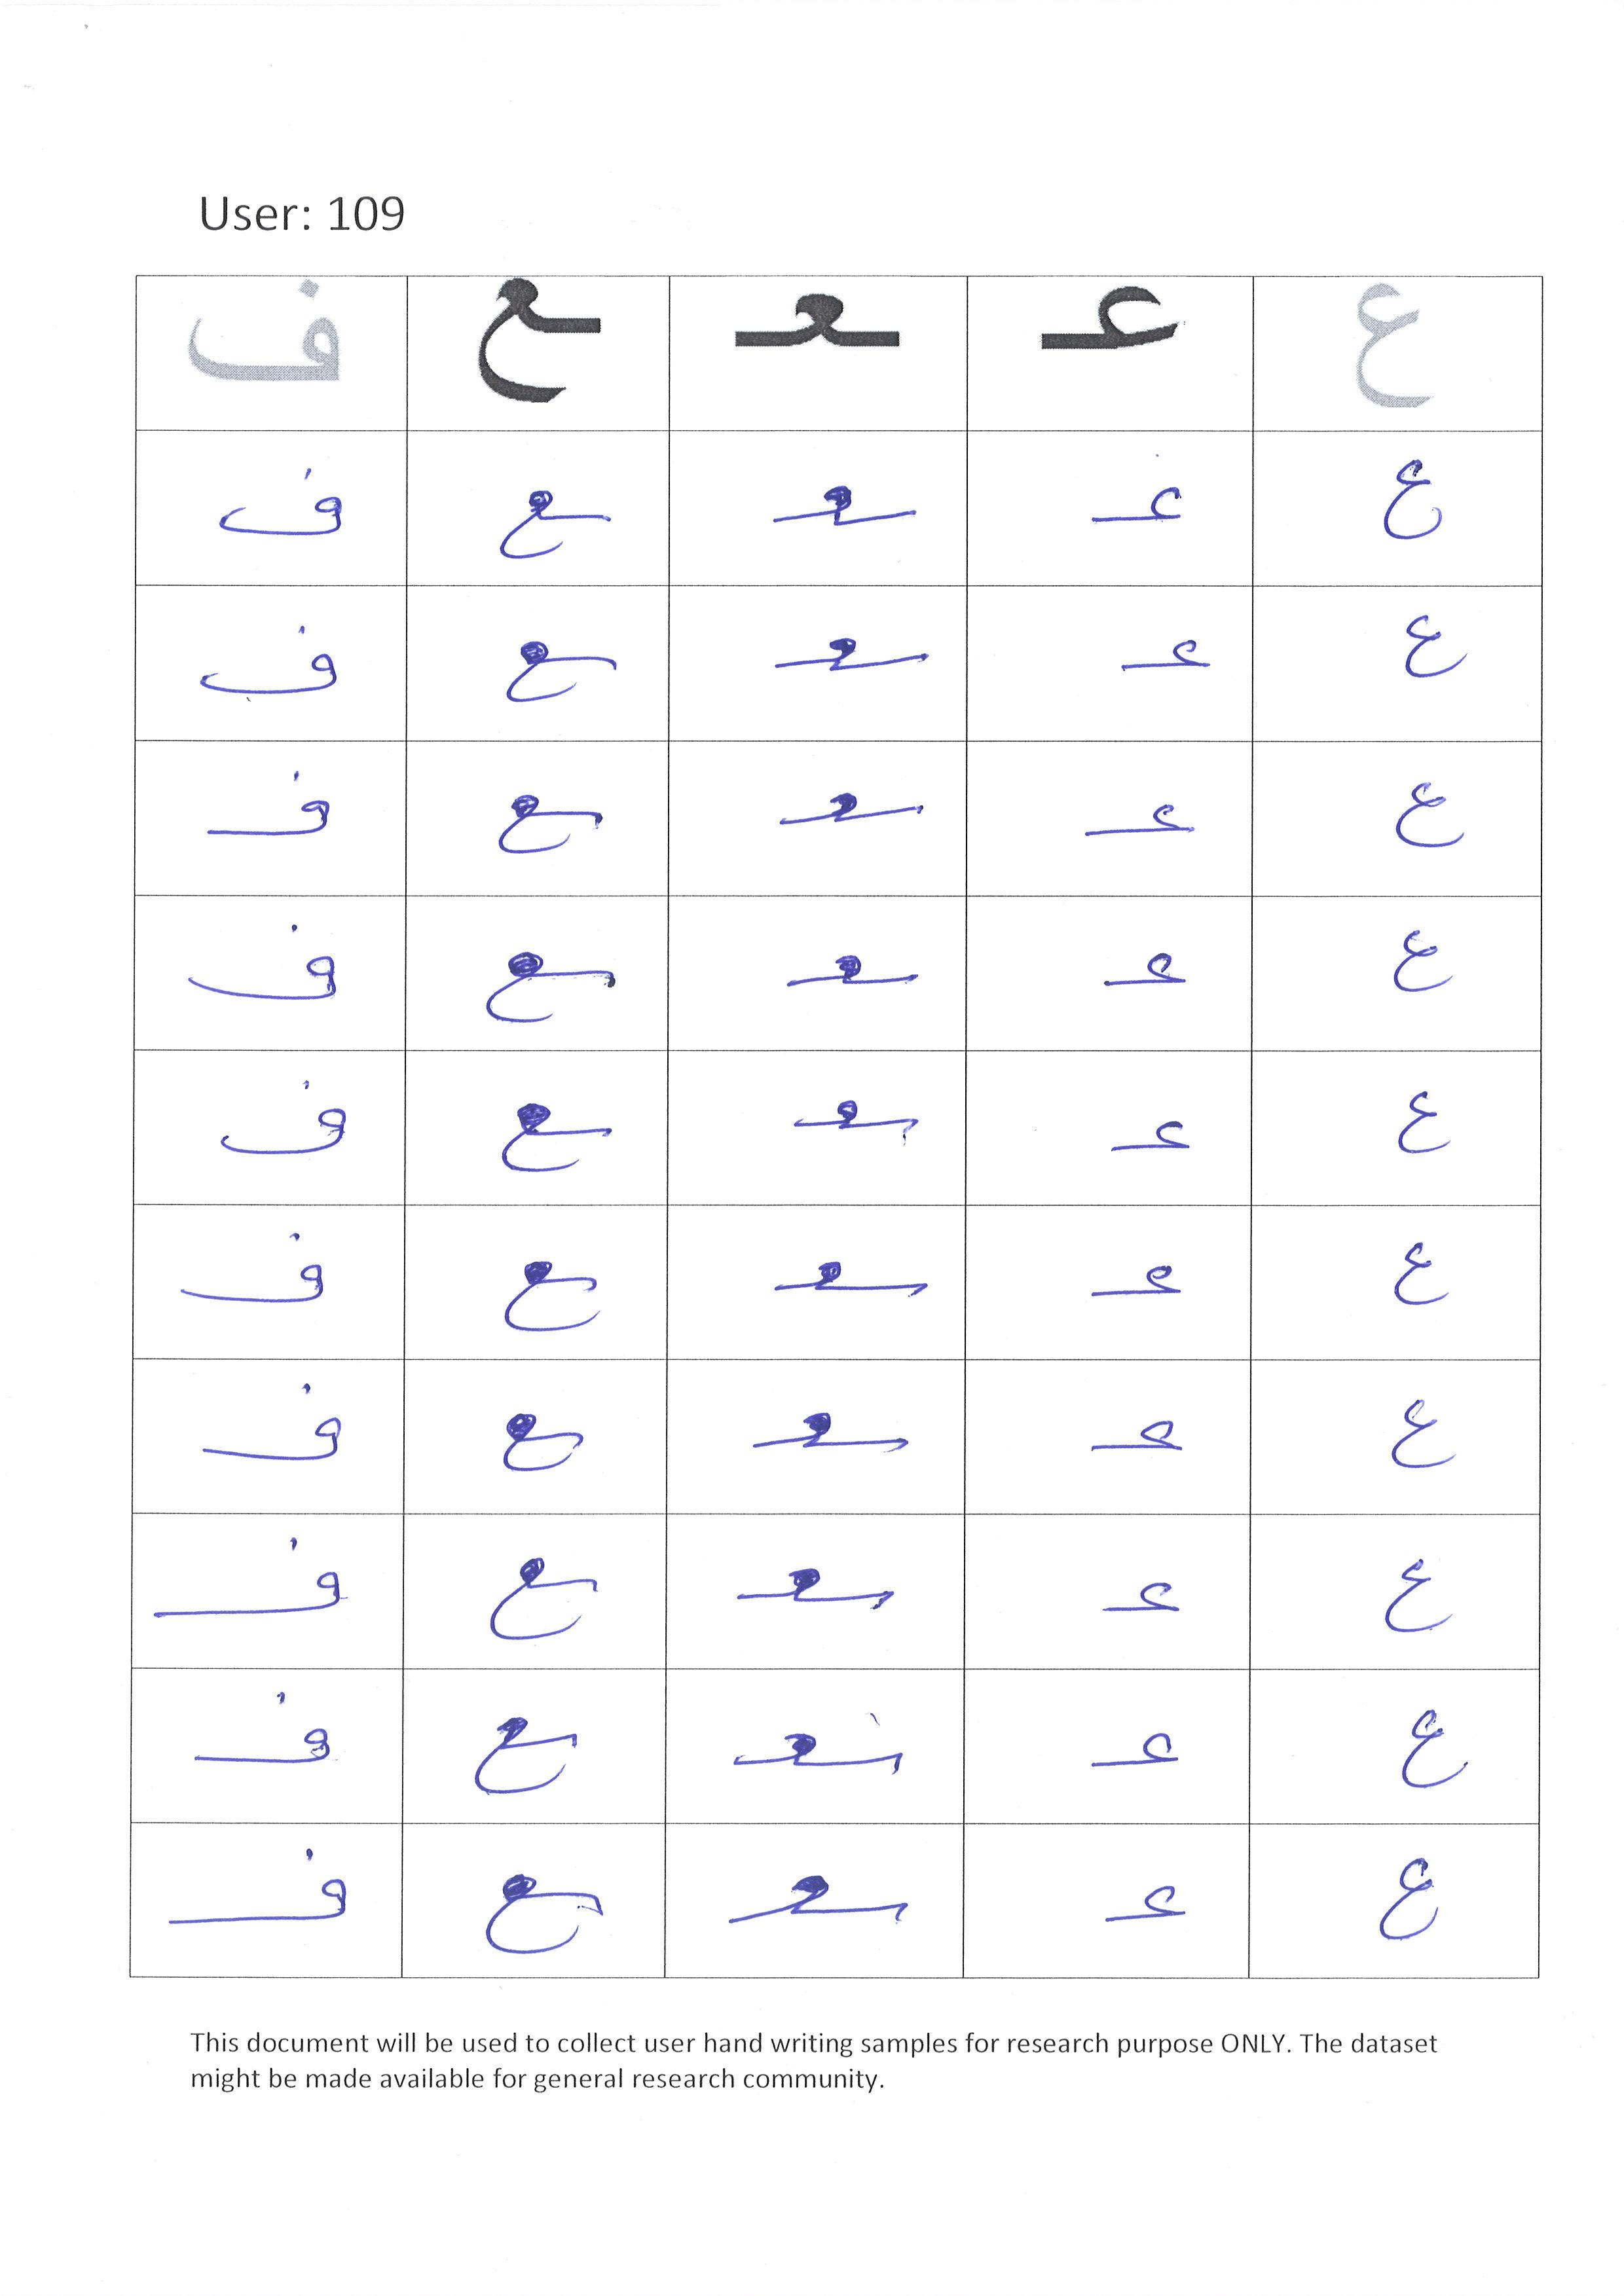 User: 109
ع عـ ـعـ ـع ف
ع عـ ـعـ ـع ف
ع عـ ـعـ ـع ف
ع عـ ـعـ ـع ف
ع عـ ـعـ ـع ف
ع عـ ـعـ ـع ف
ع عـ ـعـ ـع ف
ع عـ ـعـ ـع ف
ع عـ ـعـ ـع ف
ع عـ ـعـ ـع ف
ع عـ ـعـ ـع ف
This document will be used to collect user hand writing samples for research purpose ONLY. The dataset
might be made available for general research community.